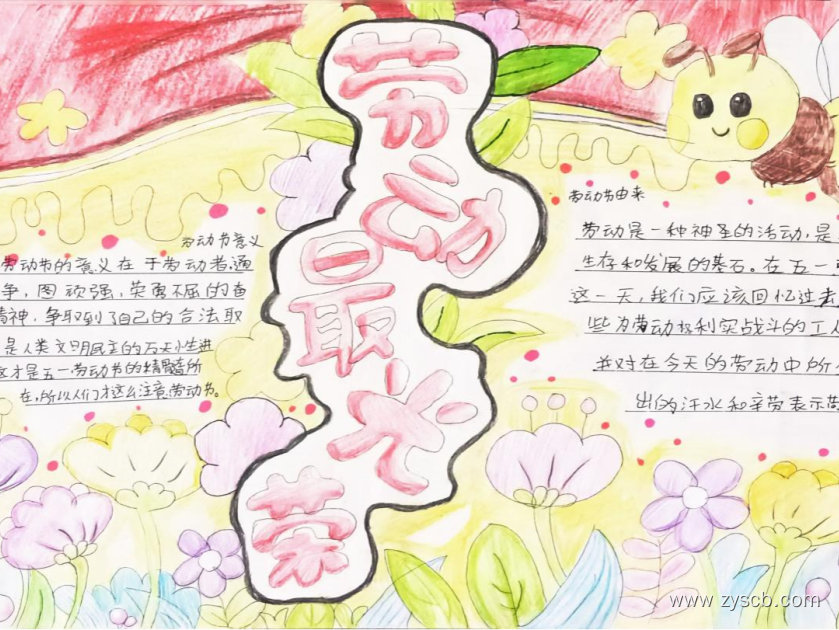 劳动最光荣
劳动节意义
劳动节的意义在于劳动者通
争,图顽强,英勇不屈的奋
精神.争取到了自己的合法取
是人类文明民主的历史性进
这才是五一劳动节的精髓所
在,所以人们才这么注意劳动节。
劳动节由来
劳动是一种神圣的活动,是
生存和发展的基石。在五一
这一天,我们应该回忆过去
些为劳动权利实战斗的工人
并对在今天的劳动中所付
出的汗水和辛劳表示
www.zyscb.com